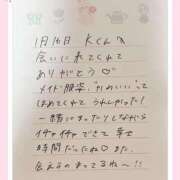 1月16日 Kくんへ
会いに来てくれて
ありがとう♡
メイド服姿、"かわいい"って
ほめてくれてうれしかった!
一緒にまったりしながら
イチャイチャできて 幸せ
時間だったね♡ また
会えるのまってるね〜!!